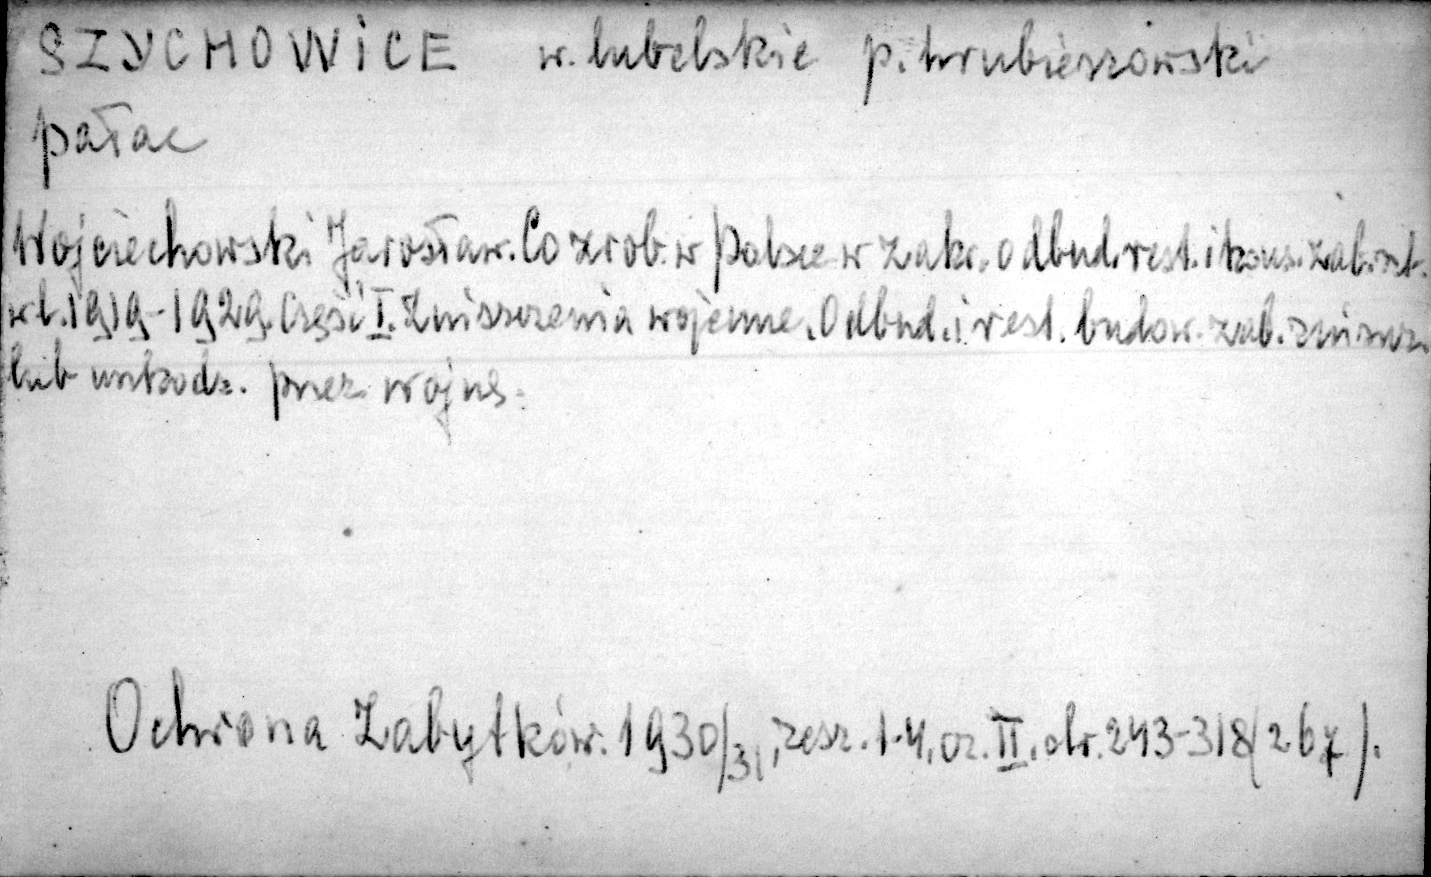 SZYCHOWICE w. lubelskie p. hrubieszowski
pałac
Wojciechowski Jarosław. Co zrob. w Polsce w zakr. odbud. rest. i kons. zab. szt.
w l. 1919-1929. Część I. Zniszczenia wojenne. Odbud. i rest. budow. zab. zniszcz.
lub uszkodz. przez wojnę.
Ochrona Zabytków. 1930/31, zesz. 1-4, cz. II, str. 243-318 (267).